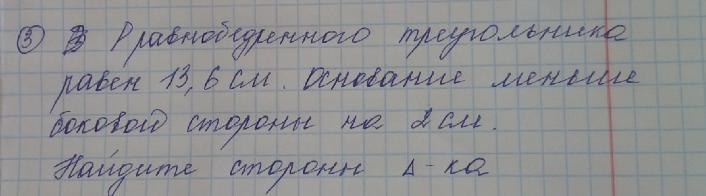 ③ P равнобедренного треугольника
равен 13,6 см. Основание меньше
боковой стороны на 2 см.
Найдите стороны Δ-ка